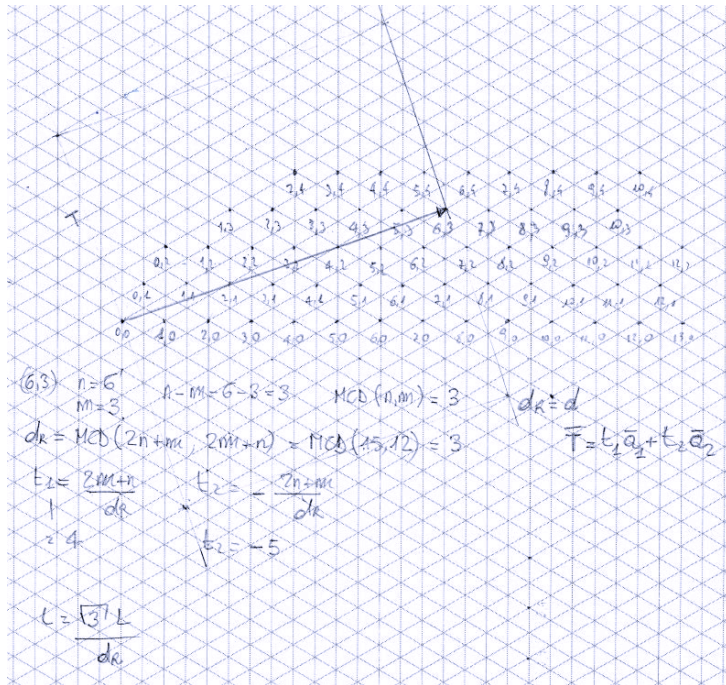 2,4 3,4 4,4 5,4 6,4 7,4 8,4 9,4 10,4
T
1,3 2,3 3,3 4,3 5,3 6,3 7,3 8,3 9,3 10,3
0,2 1,2 2,2 3,2 4,2 5,2 6,2 7,2 8,2 9,2 10,2 11,2 12,2
0,1 1,1 2,1 3,1 4,1 5,1 6,1 7,1 8,1 9,1 10,1 11,1 12,1
0,0 1,0 2,0 3,0 4,0 5,0 6,0 7,0 8,0 9,0 10,0 11,0 12,0 13,0
(6,3) n=6 n-m=6-3=3 MCD(n,m)=3 dR=d
m=3
dR = MCD(2n+m, 2m+n) = MCD(15,12) = 3 T̄=t₁ā₁+t₂ā₂
t₁ = (2m+n)/dR t₂ = -(2n+m)/dR
= 4 t₂ = -5
t = √3 L/dR